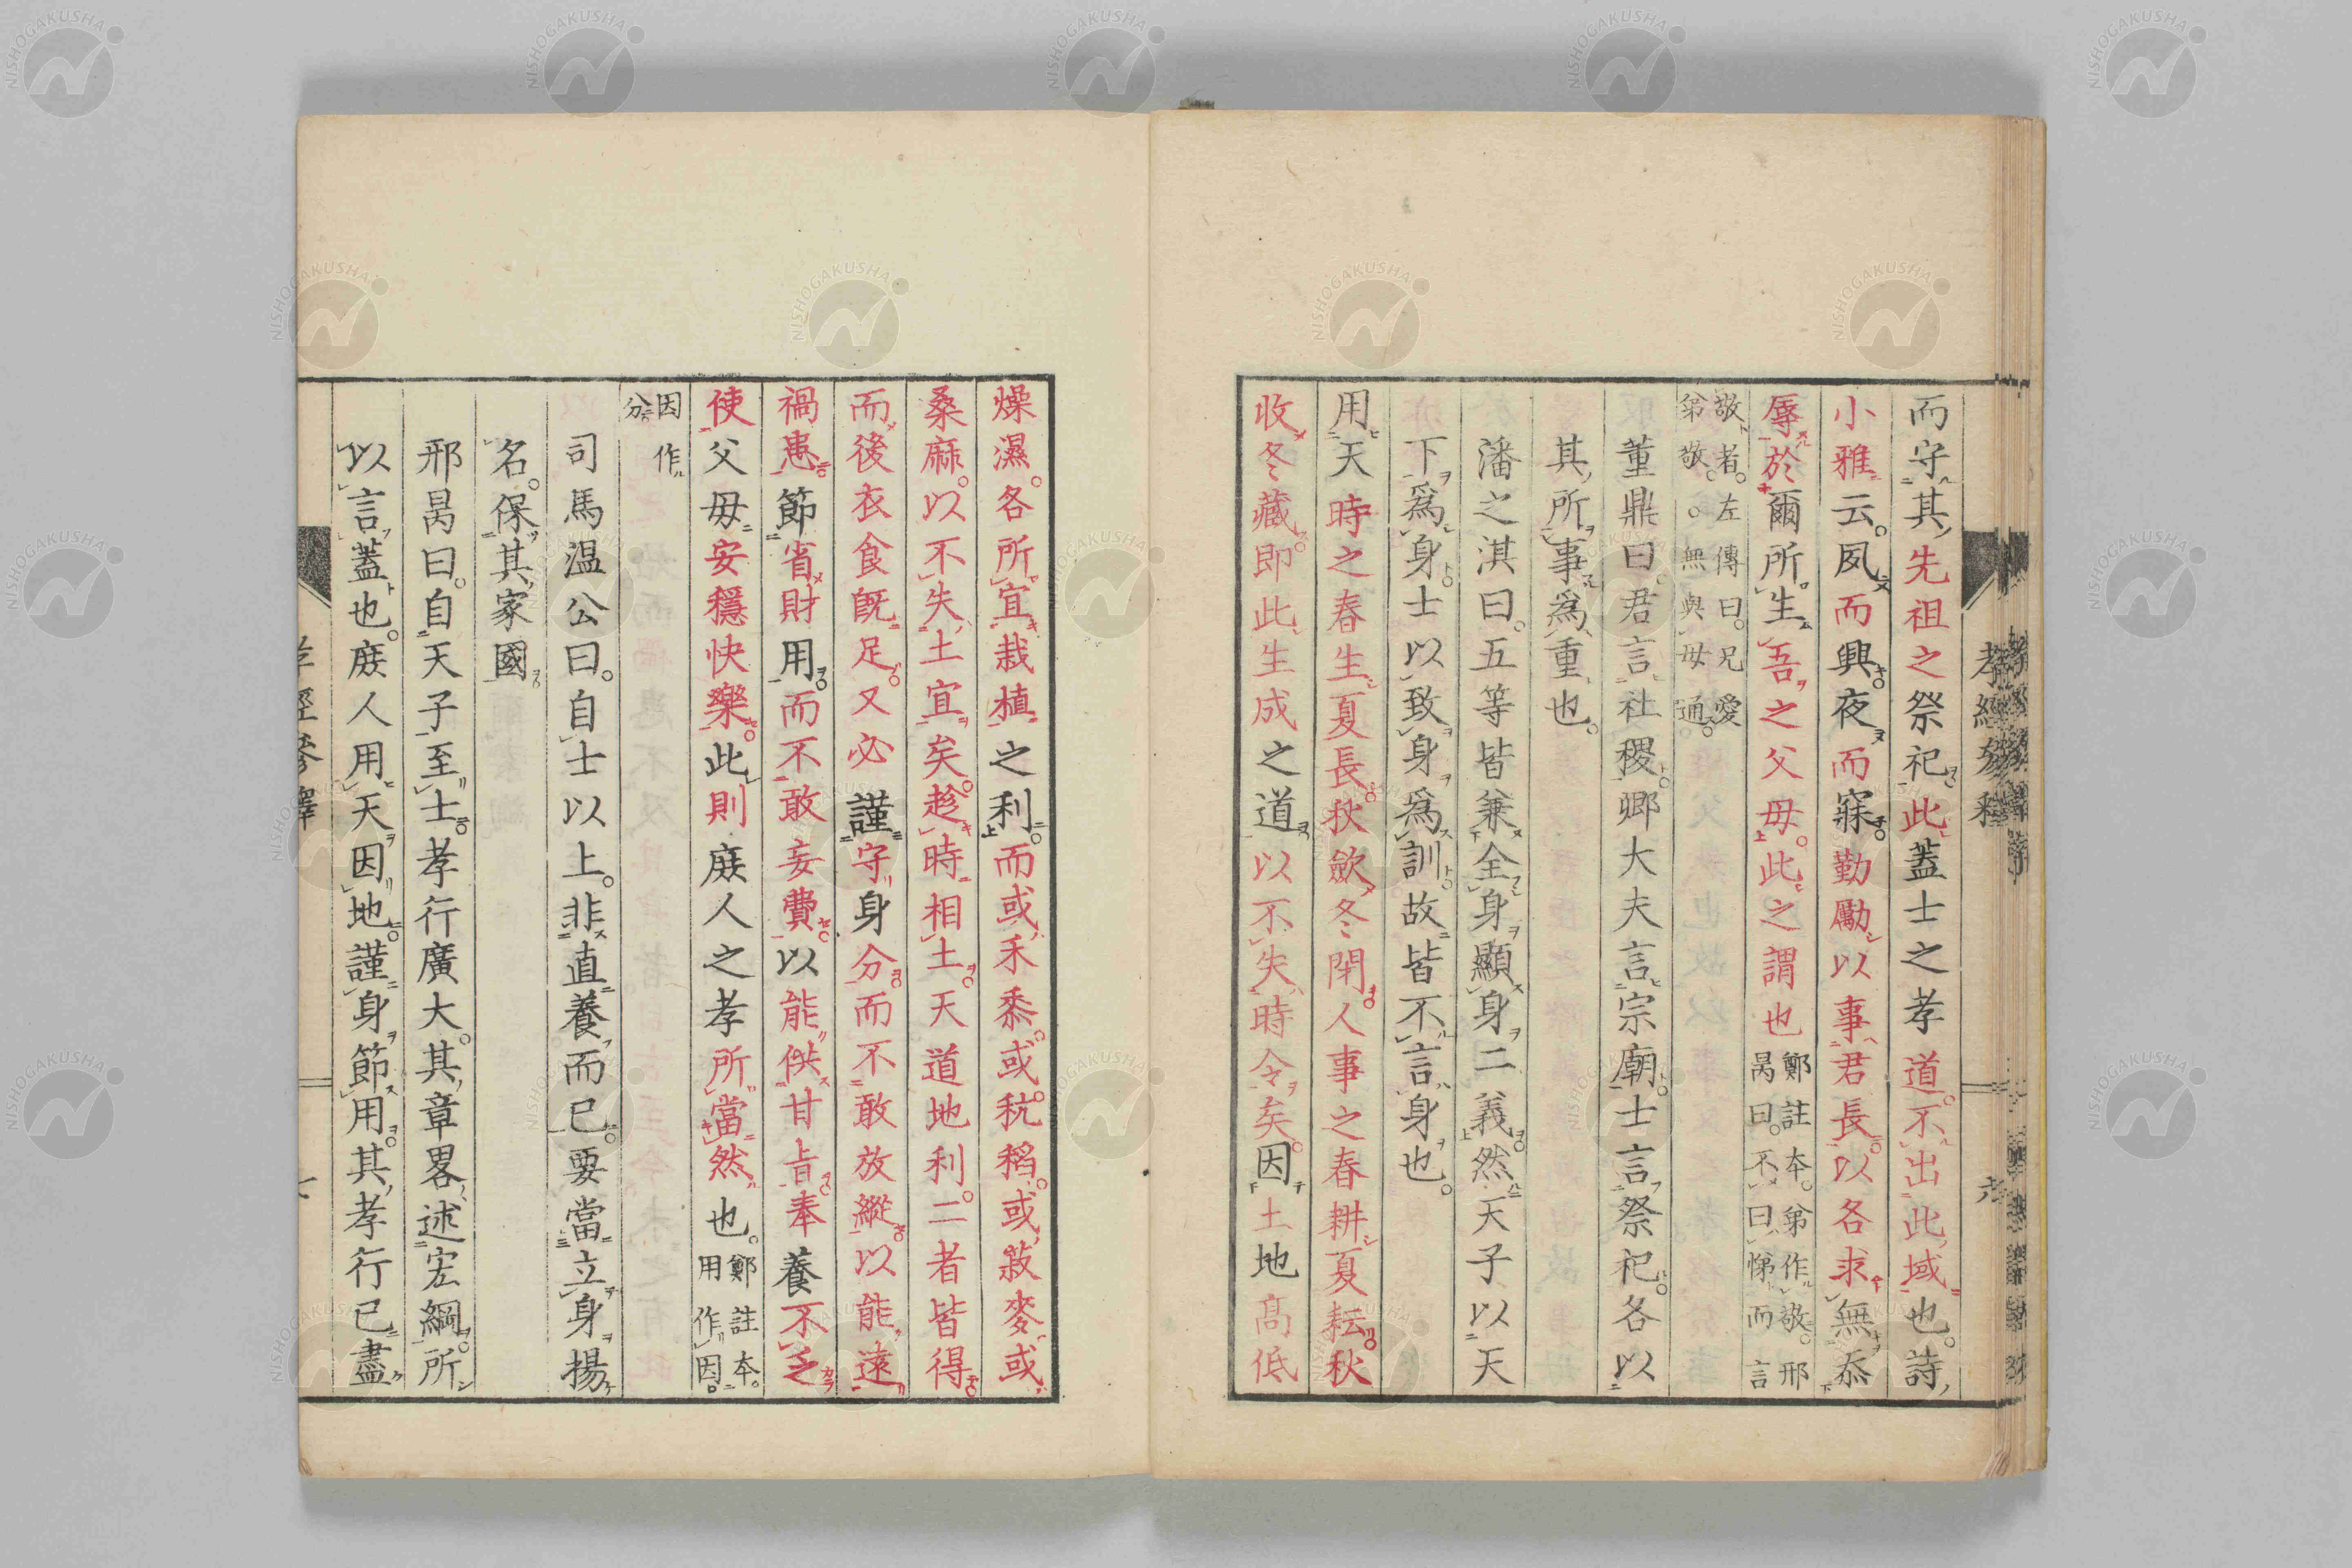 而守其先祖之祭祀此蓋士之孝道不出此域也詩
小雅云夙而興夜而寐勤勵以事君長以各求無忝
辱於爾所生吾之父母此之謂也鄭註本弟作敬邢
昺曰不曰悌而言
敬者左傳曰兄愛
弟敬○無與母通
董鼎曰君言社稷卿大夫言宗廟士言祭祀各以
其所事為重也
潘之淇曰五等皆兼全身顯身二義然天子以天
下爲身士以致身爲訓故皆不言身也
用天時之春生夏長秋歛冬閉人事之春耕夏耘秋
收冬藏即此生成之道以不失時令矣因土地高低
孝經參釋
六
燥濕各所宜栽植之利而或禾黍或秔稻或菽麥或
桑麻以不失土宜矣趁時相土天道地利二者皆得
而後衣食既足又必謹守身分而不敢放縱以能遠
禍患節省財用而不敢妄費以能供甘旨奉養不乏
使父母安穩快樂此則庶人之孝所當然也鄭註本
用作因
因作
分
司馬温公曰自士以上非直養而已要當立身揚
名保其家國
邢昺曰自天子至士孝行廣大其章畧述宏綱所
以言蓋也庶人用天因地謹身節用其孝行已盡
孝經參釋
NISHOGAKUSHA